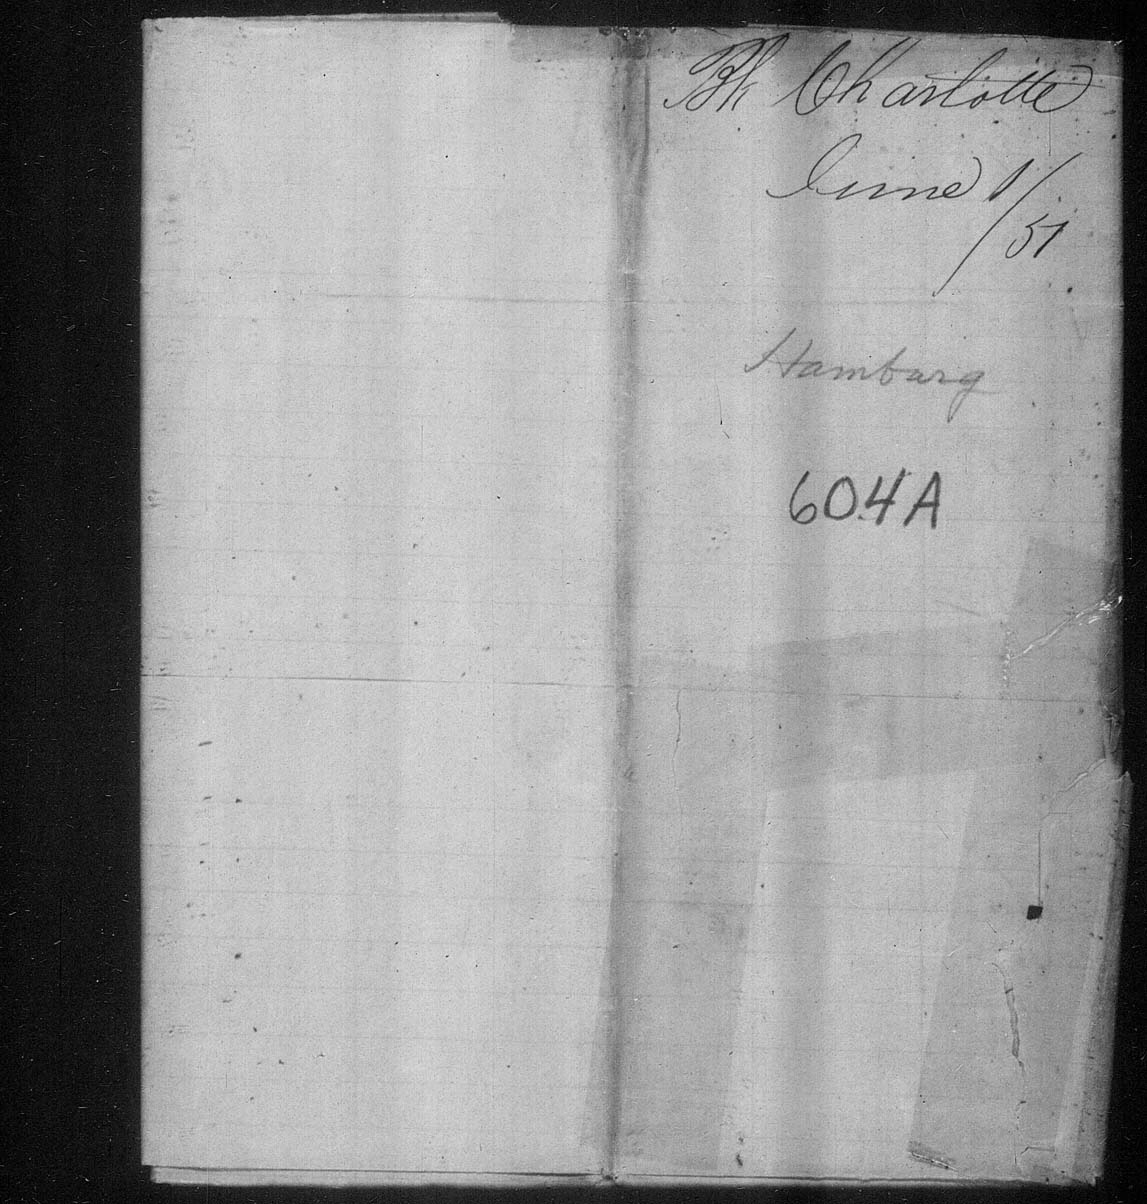 Bk Charlotte
June 1/51
Hamburg
604A